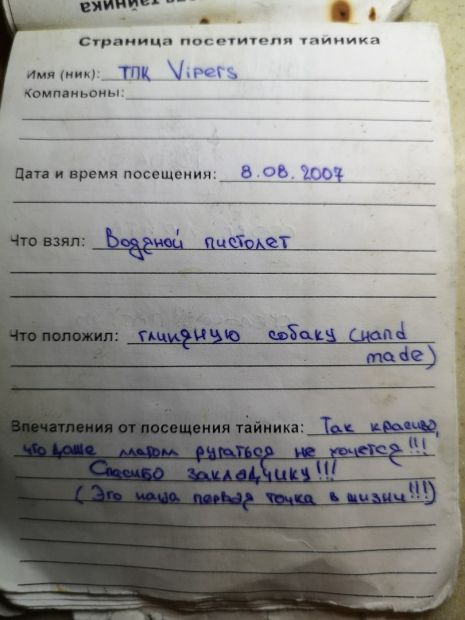 тайника
Страница посетителя тайника
Имя (ник): ТПК Vipers
Компаньоны:
Дата и время посещения: 8.08.2007
Что взял: Водяной пистолет
Что положил: глиняную собаку (hand
made)
Впечатления от посещения тайника: Так красиво,
что даше матом ругаться не хочется!!!
Спасибо закладчику!!!
(Это наша первая точка в жизни!!!)